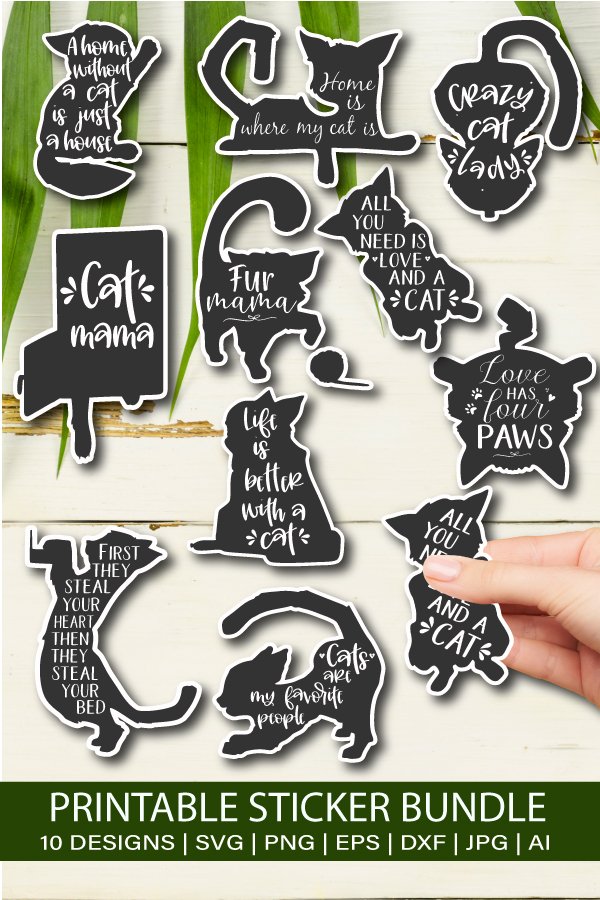 A home
without
a cat
is just
a house
Home
is
where my cat is
Crazy
cat
lady
Cat
mama
Fur
mama
ALL
YOU
NEED IS
LOVE
AND A
CAT
Love
HAS
four
PAWS
Life
is
better
with a
cat
FIRST
THEY
STEAL
YOUR
HEART
THEN
THEY
STEAL
YOUR
BED
Cats
are
my favorite
people
ALL
YOU
AND A
CAT
PRINTABLE STICKER BUNDLE
10 DESIGNS | SVG | PNG | EPS | DXF | JPG | AI